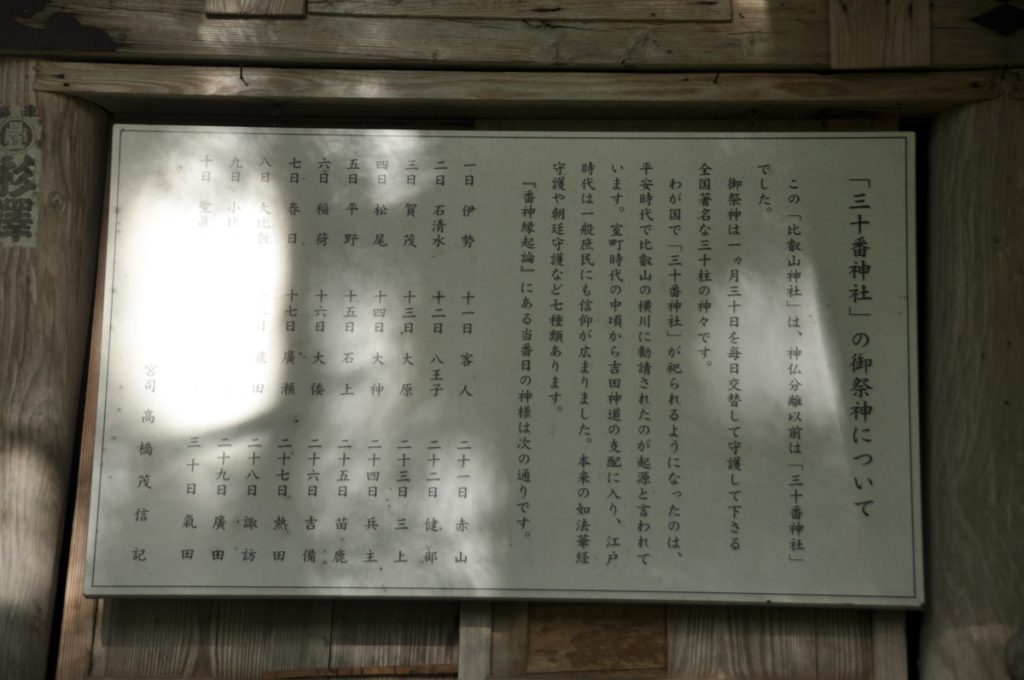 「三十番神社」の御祭神について
この「比叡山神社」は、神仏分離以前は「三十番神社」
でした。
御祭神は一ヵ月三十日を毎日交替して守護して下さる
全国著名な三十柱の神々です。
わが国で「三十番神社」が祀られるようになったのは、
平安時代で比叡山の横川に勧請されたのが起源と言われて
います。室町時代の中頃から吉田神道の支配に入り、江戸
時代は一般庶民にも信仰が広まりました。本来の如法華経
守護や朝廷守護など七種類あります。
『番神縁起論』にある当番日の神様は次の通りです。
一日 伊勢
二日 石清水
三日 賀茂
四日 松尾
五日 平野
六日 稲荷
七日 春日
八日 大比叡
九日 小比
十日 聖真
十一日 客人
十二日 八王子
十三日 大原
十四日 大神
十五日 石上
十六日 大倭
十七日 廣瀬
日 龍田
二十一日 赤山
二十二日 健部
二十三日 三上
二十四日 兵主
二十五日 苗鹿
二十六日 吉備
二十七日 熱田
二十八日 諏訪
二十九日 廣田
三十日 氣田
宮司 高橋茂信 記
杉澤